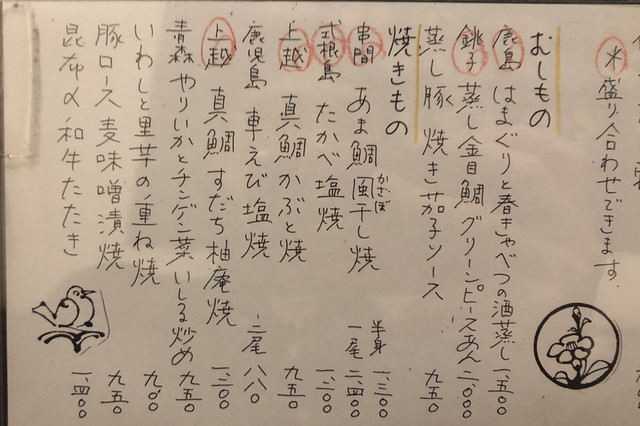 盛り合わせできます。
むしもの
鹿島 はまぐりと春きゃべつの酒蒸し 一、五〇〇
銚子 蒸し金目鯛グリーンピースあん 二、〇〇〇
蒸し豚焼き茄子ソース 九五〇
焼きもの
串間 あま鯛風干し焼 半身 一、三〇〇
かざぼ
一尾 二、四〇〇
式根島 たかべ塩焼 一、二〇〇
上越 真鯛かぶと焼 九五〇
鹿児島 車えび塩焼 二尾 八八〇
上越 真鯛すだち柚庵焼 一、三〇〇
青森 やりいかとチンゲン菜いしる炒め 九五〇
いわしと里芋の重ね焼 九〇〇
豚ロース麦味噌漬焼 九五〇
昆布〆和牛たたき 一、四〇〇